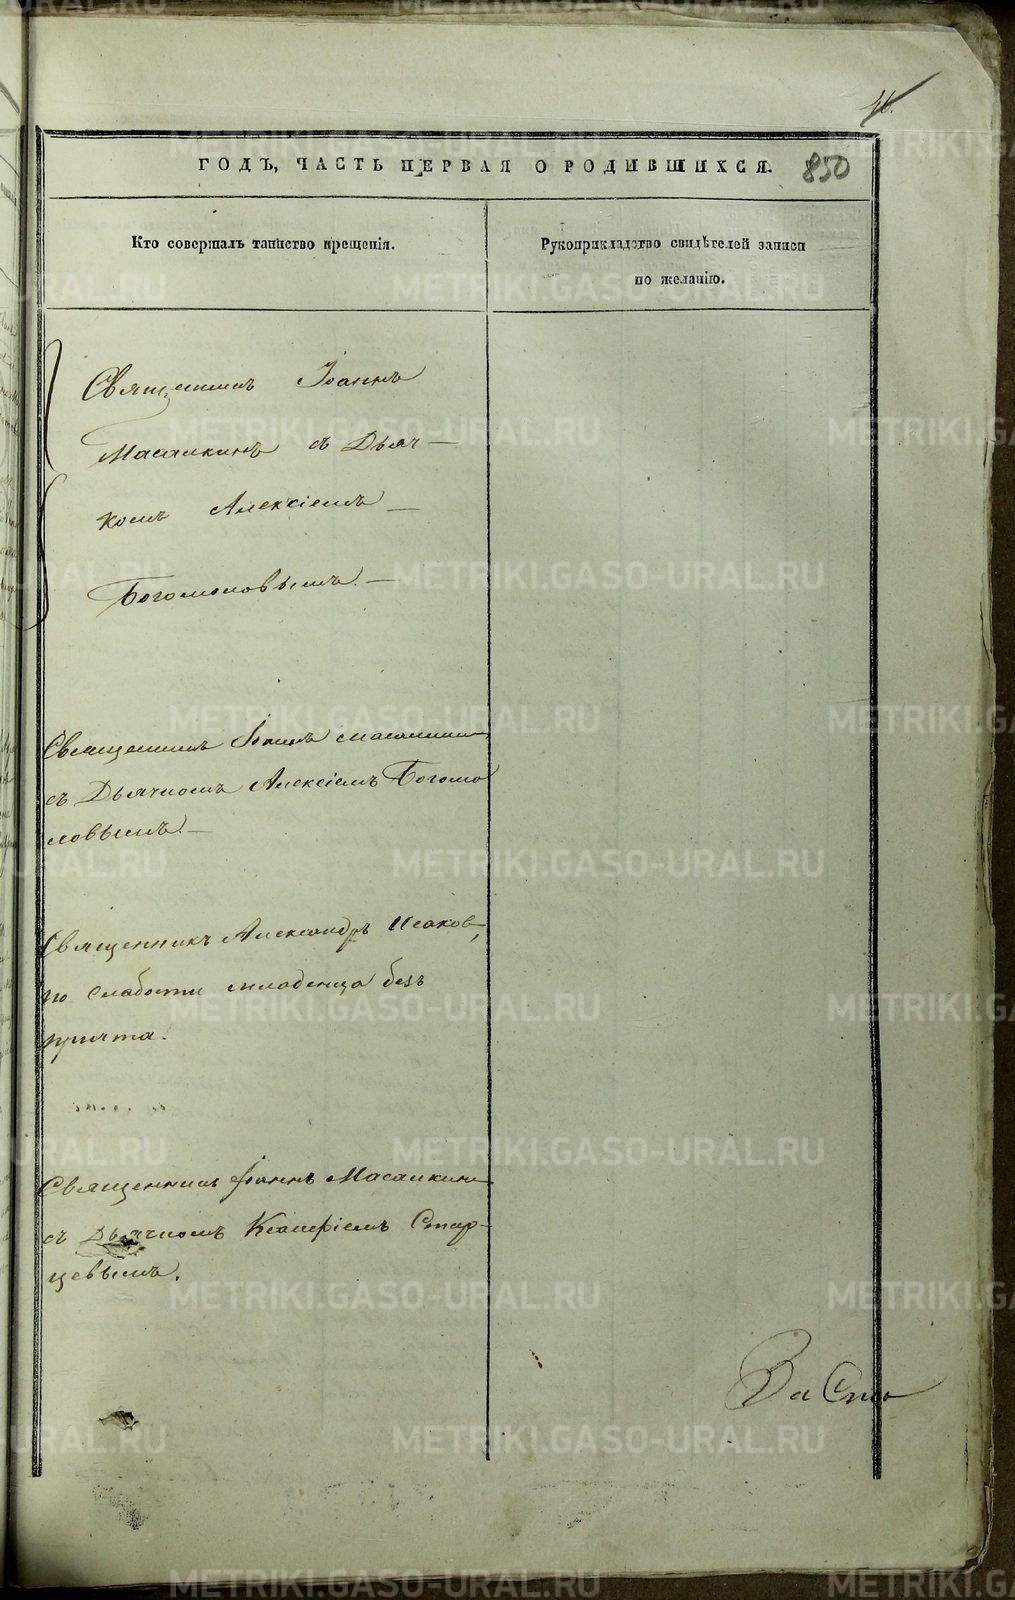 46.
ГОДЪ, ЧАСТЬ ПЕРВАЯ О РОДИВШИХСЯ.
850
Кто совершалъ таинство крещенія.
Рукоприкладство свидѣтелей записи
по желанію.
Священникъ Іоаннъ
Масалкинъ съ Дьяч-
комъ Алексіемъ
Богомоловымъ.
Священникъ Іоаннъ Масалкинъ
съ Дьячкомъ Алексіемъ Богомо
ловымъ.
Священникъ Александръ Исаков,
по слабости младенца безъ
причта.
Священникъ Іоаннъ Масалкинъ
съ Дьячкомъ Стар-
цевымъ.
METRIKI.GASO-URAL.RU